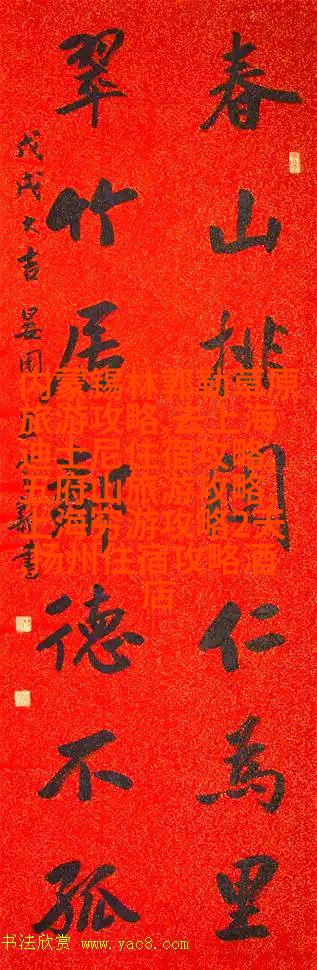 春山排闥仁為里
翠竹居鄰德不孤
戊戌大吉
書
内蒙锡林郭勒草原
旅游攻略 去上海
迪士尼住宿攻略
五府山旅游攻略
上海穷游攻略2天
扬州住宿攻略酒
店
书法欣赏 www.yac8.com